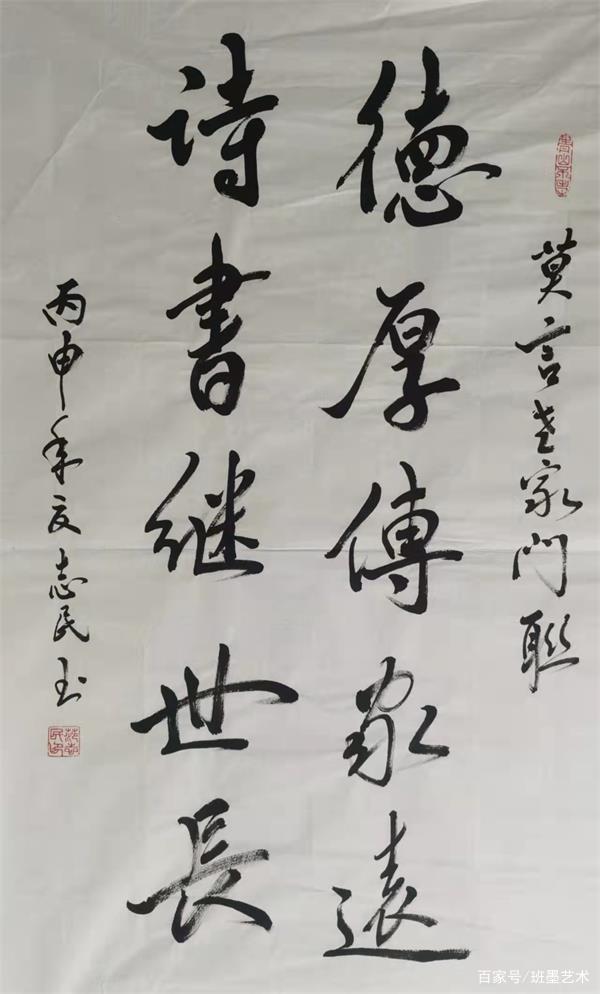 莫言老家門聯
德厚傳家遠
詩書继世長
丙申年夏志民书
百家号/班墨艺术